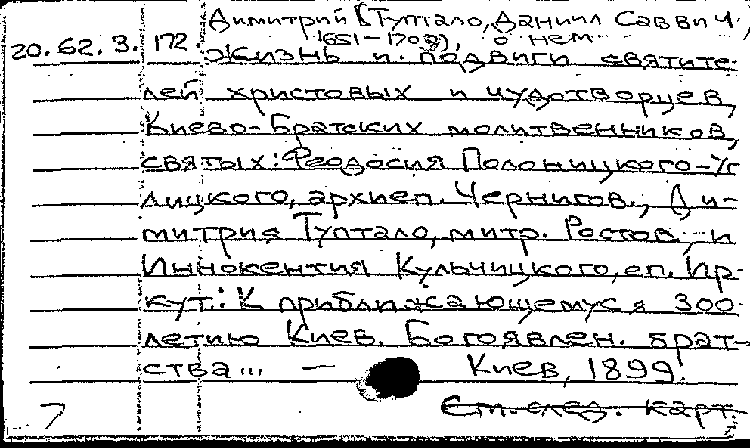 Димитрий (Туптало, Даниил Саввич,
1651-1709), о нем.
20.62.3. 172. Жизнь и подвиги святите-
лей христовых и чудотворцев,
Киево-Братских молитвенников,
святых: Феодосия Полоницкого-Уг
лицкого, архиеп. Чернигов., Ди-
митрия Туптало, митр. Ростов. и
Иннокентия Кульчицкого, еп. Ир-
кут.: К приближающемуся 300-
летию Киев. Богоявлен. брат-
ства... — Киев, 1899.
См. след. карт.
7